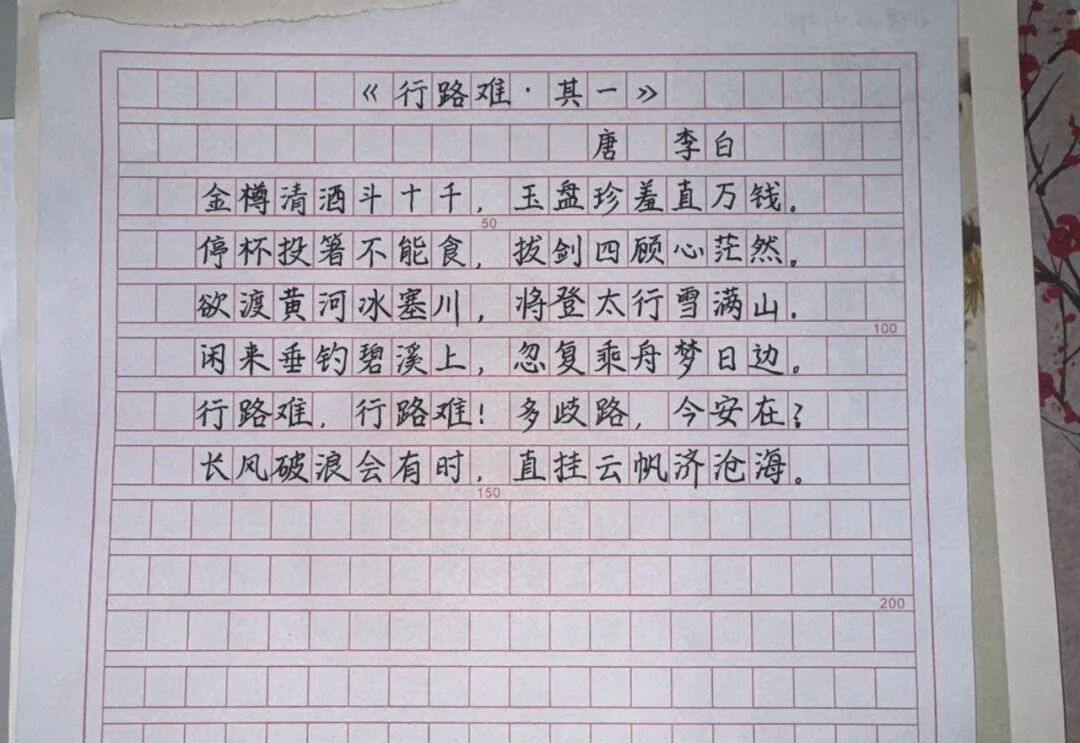 《行路难·其一》
唐 李白
金樽清酒斗十千，玉盘珍羞直万钱。
50
停杯投箸不能食，拔剑四顾心茫然。
欲渡黄河冰塞川，将登太行雪满山.
100
闲来垂钓碧溪上，忽复乘舟梦日边。
行路难，行路难！多歧路，今安在？
长风破浪会有时，直挂云帆济沧海。
150
200